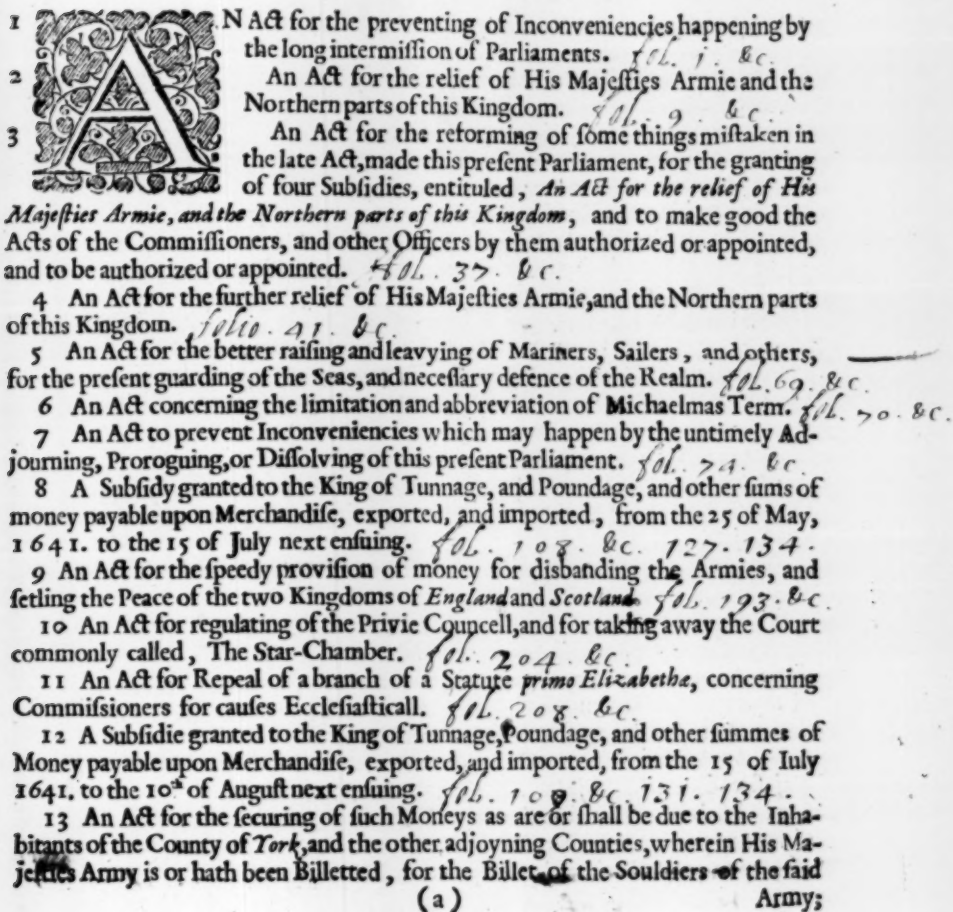 1 AN Act for the preventing of Inconveniencies happening by
the long intermiſſion of Parliaments. fol. 1. &c.
2 An Act for the relief of His Majeſties Armie and the
Northern parts of this Kingdom. fol. 9. &c.
3 An Act for the reforming of ſome things miſtaken in
the late Act, made this preſent Parliament, for the granting
of four Subſidies, entituled, An Act for the relief of His
Majeſties Armie, and the Northern parts of this Kingdom, and to make good the
Acts of the Commiſſioners, and other Officers by them authorized or appointed,
and to be authorized or appointed. fol. 37. &c.
4 An Act for the further relief of His Majeſties Armie, and the Northern parts
of this Kingdom. folio. 41. &c.
5 An Act for the better raiſing and leavying of Mariners, Sailers, and others,
for the preſent guarding of the Seas, and neceſſary defence of the Realm. fol. 69. &c.
6 An Act concerning the limitation and abbreviation of Michaelmas Term. fol. 70. &c.
7 An Act to prevent Inconveniencies which may happen by the untimely Ad-
journing, Proroguing, or Diſſolving of this preſent Parliament. fol. 74. &c.
8 A Subſidy granted to the King of Tunnage, and Poundage, and other ſums of
money payable upon Merchandiſe, exported, and imported, from the 25 of May,
1641. to the 15 of July next enſuing. fol. 108. &c. 127. 134.
9 An Act for the ſpeedy proviſion of money for disbanding the Armies, and
ſetling the Peace of the two Kingdoms of England and Scotland. fol. 193. &c
10 An Act for regulating of the Privie Councell, and for taking away the Court
commonly called, The Star-Chamber. fol. 204. &c.
11 An Act for Repeal of a branch of a Statute primo Elizabethæ, concerning
Commiſſioners for cauſes Eccleſiaſticall. fol. 208. &c.
12 A Subſidie granted to the King of Tunnage, Poundage, and other ſummes of
Money payable upon Merchandiſe, exported, and imported, from the 15 of Iuly
1641. to the 10th of Auguſt next enſuing. fol. 109 &c. 131. 134.
13 An Act for the ſecuring of ſuch Moneys as are or ſhall be due to the Inha-
bitants of the County of York, and the other adjoyning Counties, wherein His Ma-
jeſties Army is or hath been Billetted, for the Billet of the Souldiers of the ſaid
(a) Army;